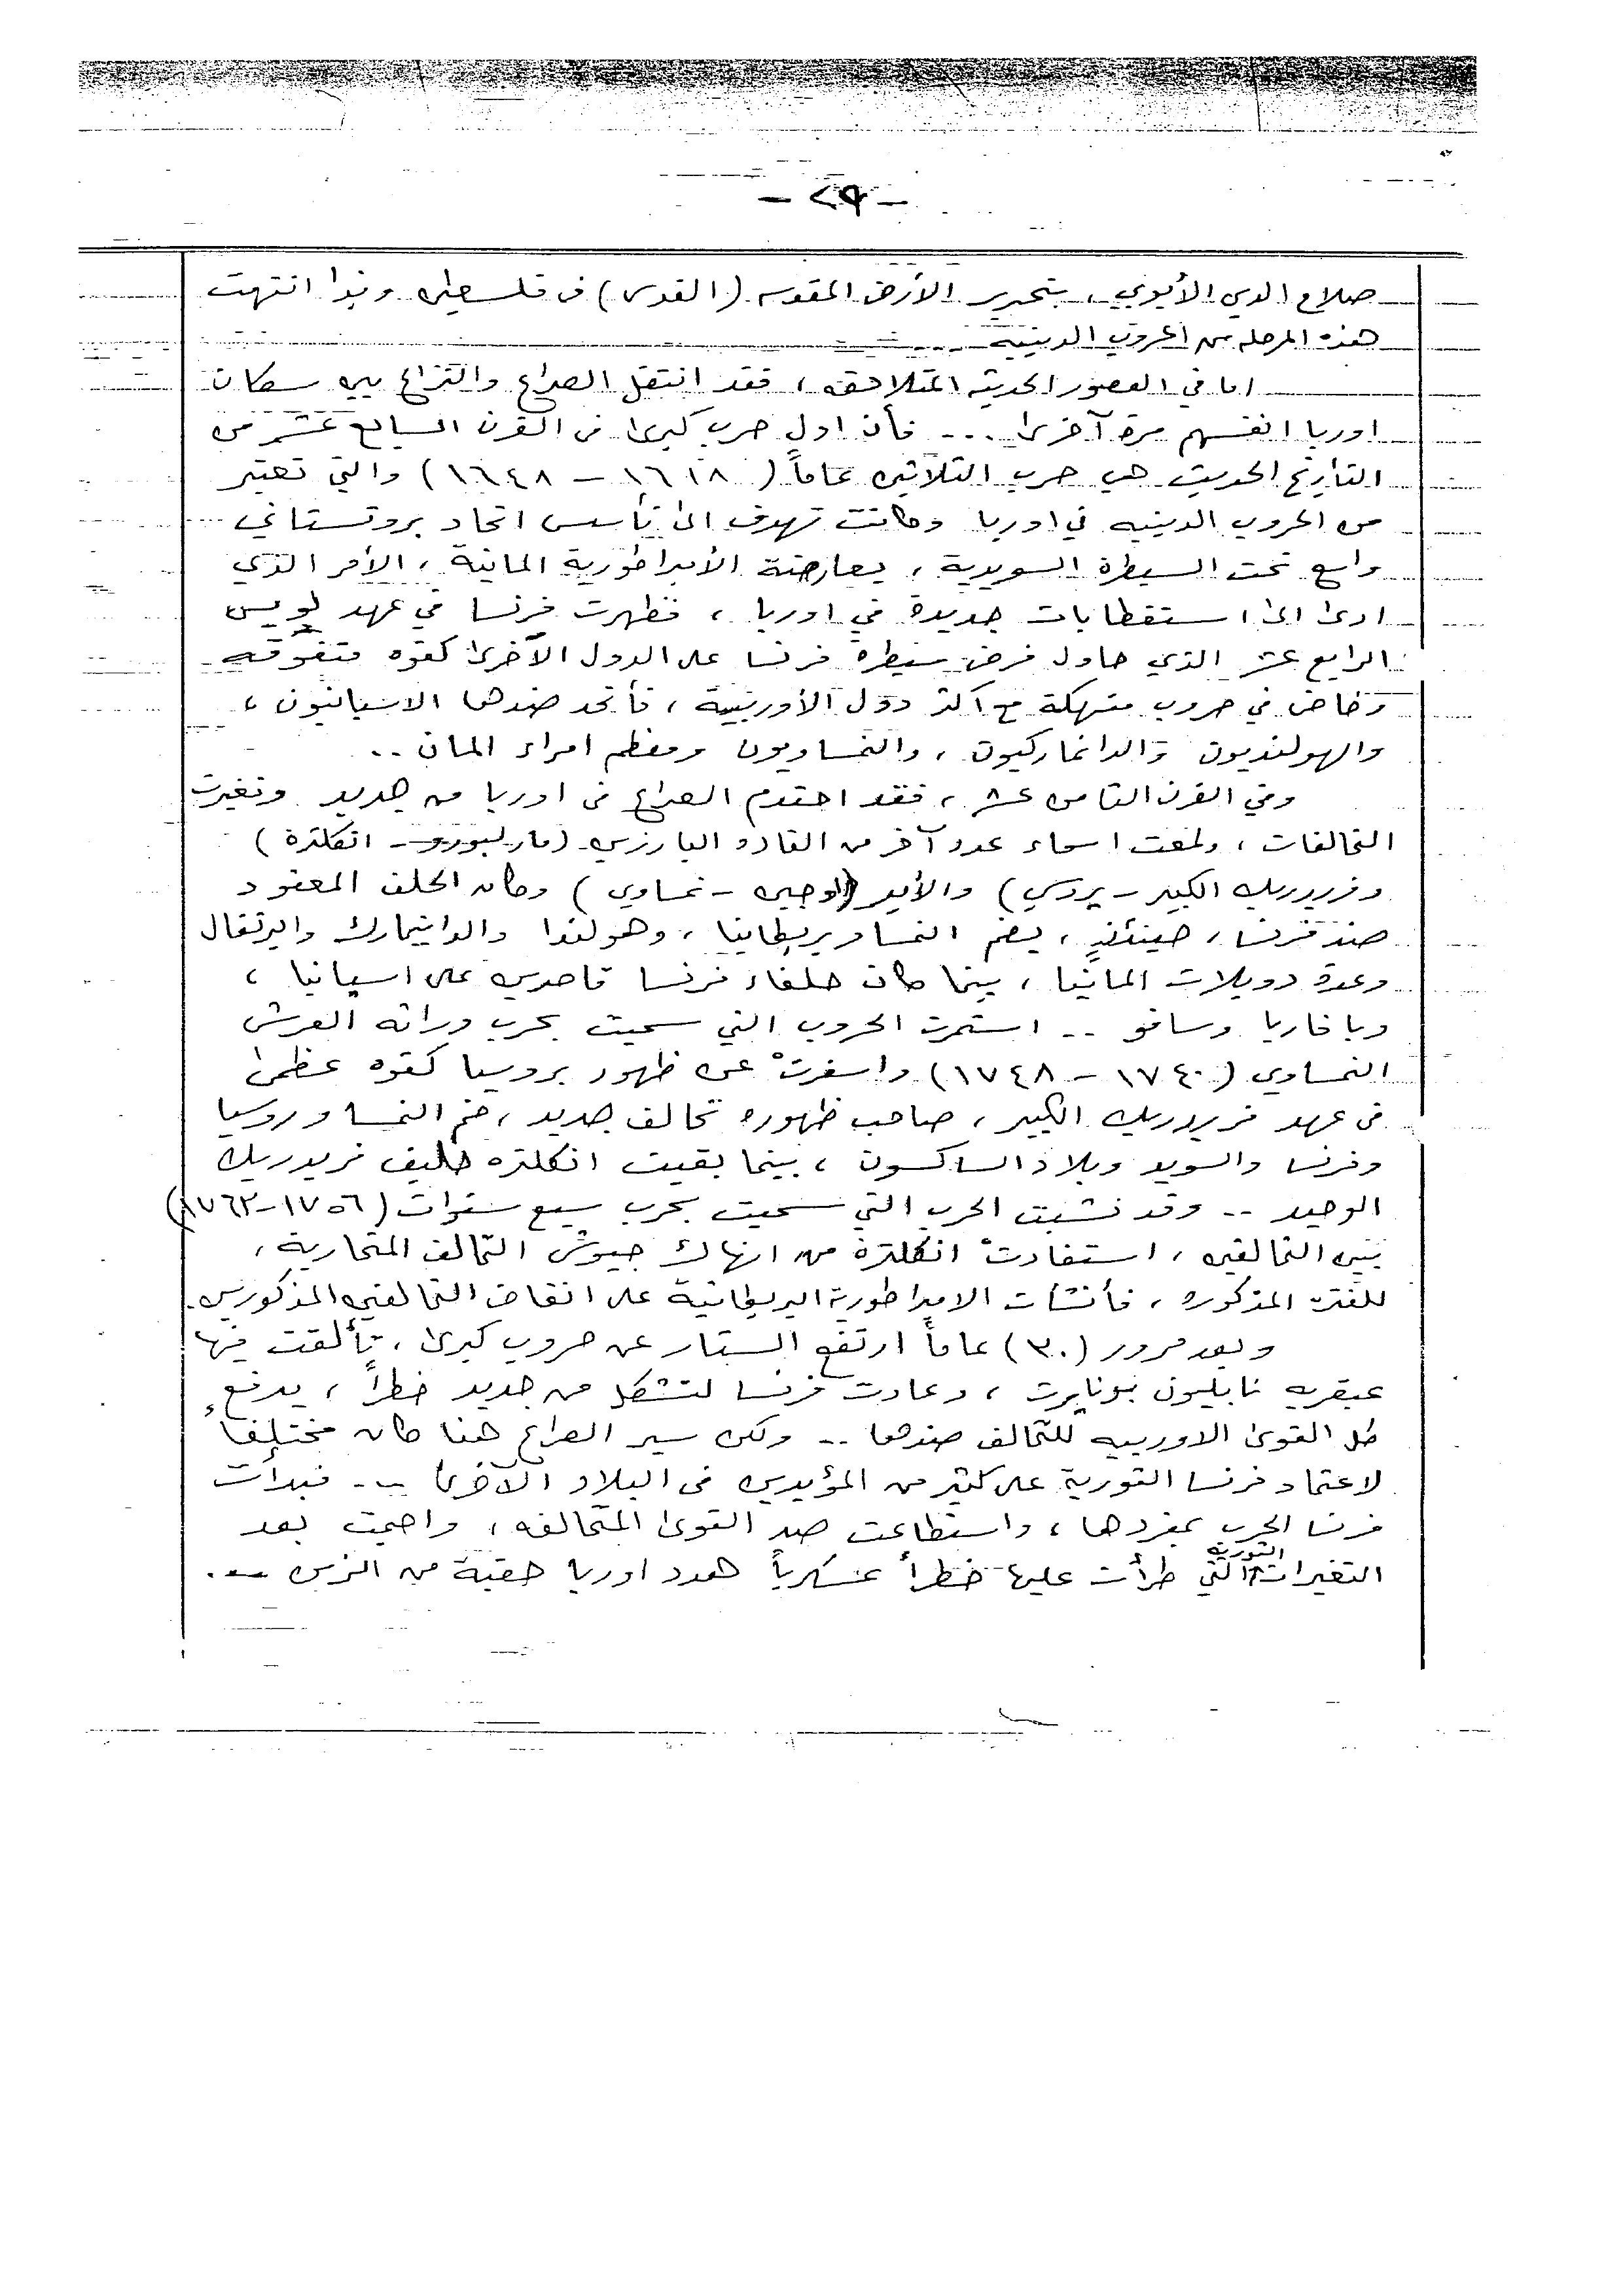 - ٢٩ -
صلاح الدين الأيوبي ، بتحرير الأرض المقدسه (القدس) في فلسطين وبذا انتهت
هذه المرحله من الحروب الدينيه
اما في العصور الحديثه المتلاحقه ، فقد انتقل الصراع والنزاع بين سكان
اوربا انفسهم مرة آخرى ... فأن اول حرب كبرى في القرن السابع عشر من
التاريخ الحديث هي حرب الثلاثين عاماً (١٦١٨ - ١٦٤٨) والتي تعتبر
من الحروب الدينيه في اوربا وكانت تهدف الى تأسيس اتحاد بروتستاني
واسع تحت السيطرة السويدية ، يعارضة الأمبراطورية المانية ، الأمر الذي
ادى الى استقطابات جديدة في اوربا ، فظهرت فرنسا في عهد لويس
الرابع عشر الذي حاول فرض سيطرة فرنسا على الدول الآخرى كقوه متفوقه
وخاض في حروب منهكة مع اكثر دول الأوربية ، فأتحد ضدها الاسبانيون ،
والهولنديون والدانماركيون ، والنمساويون ومعظم امراء المان ..
وفي القرن الثامن عشر ، فقد احتدم الصراع في اوربا من جديد وتغيرت
التحالفات ، ولمعت اسماء عدد آخر من القادة البارزين (مارلبورو - انكلترة)
وفريدريك الكبير - بروسي) والأمير (اوجين - نمساوي) وكان الحلف المعقود
ضد فرنسا ، حينئذٍ ، يضم النمسا وبريطانيا ، وهولندا والدانيمارك والبرتغال
وعدة دويلات المانيا ، بينما كان حلفاء فرنسا قاصرين على اسبانيا ،
وبافاريا وسافو .. استمرت الحروب التي سميت بحرب وراثه العرش
النمساوي (١٧٤٠ - ١٧٤٨) واسفرتْ عن ظهور بروسيا كقوه عظمى
في عهد فريدريك الكبير ، صاحب ظهوره تحالف جديد ، ضم النمسا وروسيا
وفرنسا والسويد وبلاد الساكسون ، بينما بقيت انكلتره حليف فريدريك
الوحيد .. وقد نشبت الحرب التي سميت بحرب سبع سنوات (١٧٥٦-١٧٦٣)
بين التحالفين ، استفادتْ انكلترة من انهاك جيوش التحالف المتحاربة ،
للفترة المذكوره ، فأنشأت الامبراطورية البريطانية على انقاض التحالفين المذكورين.
وبعد مرور (٣٠) عاماً ارتفع الستار عن حروب كبرى ، تألقت فيها
عبقريه نابليون بونابرت ، وعادت فرنسا لتشكل من جديد خطراً ، يدفع
كل القوى الاوربيه للتحالف ضدها .. ولكن سير الصراع هنا كان مختلفاً
لاعتماد فرنسا الثورية على كثير من المؤيدين في البلاد الآخرى ... فبدأت
فرنسا الحرب بمفردها ، واستطاعت صد القوى المتحالفه ، واصبحت بعد
التغيرات الثورية التي طرأت عليها خطراً عسكرياً هدد اوربا حقبة من الزمن ...